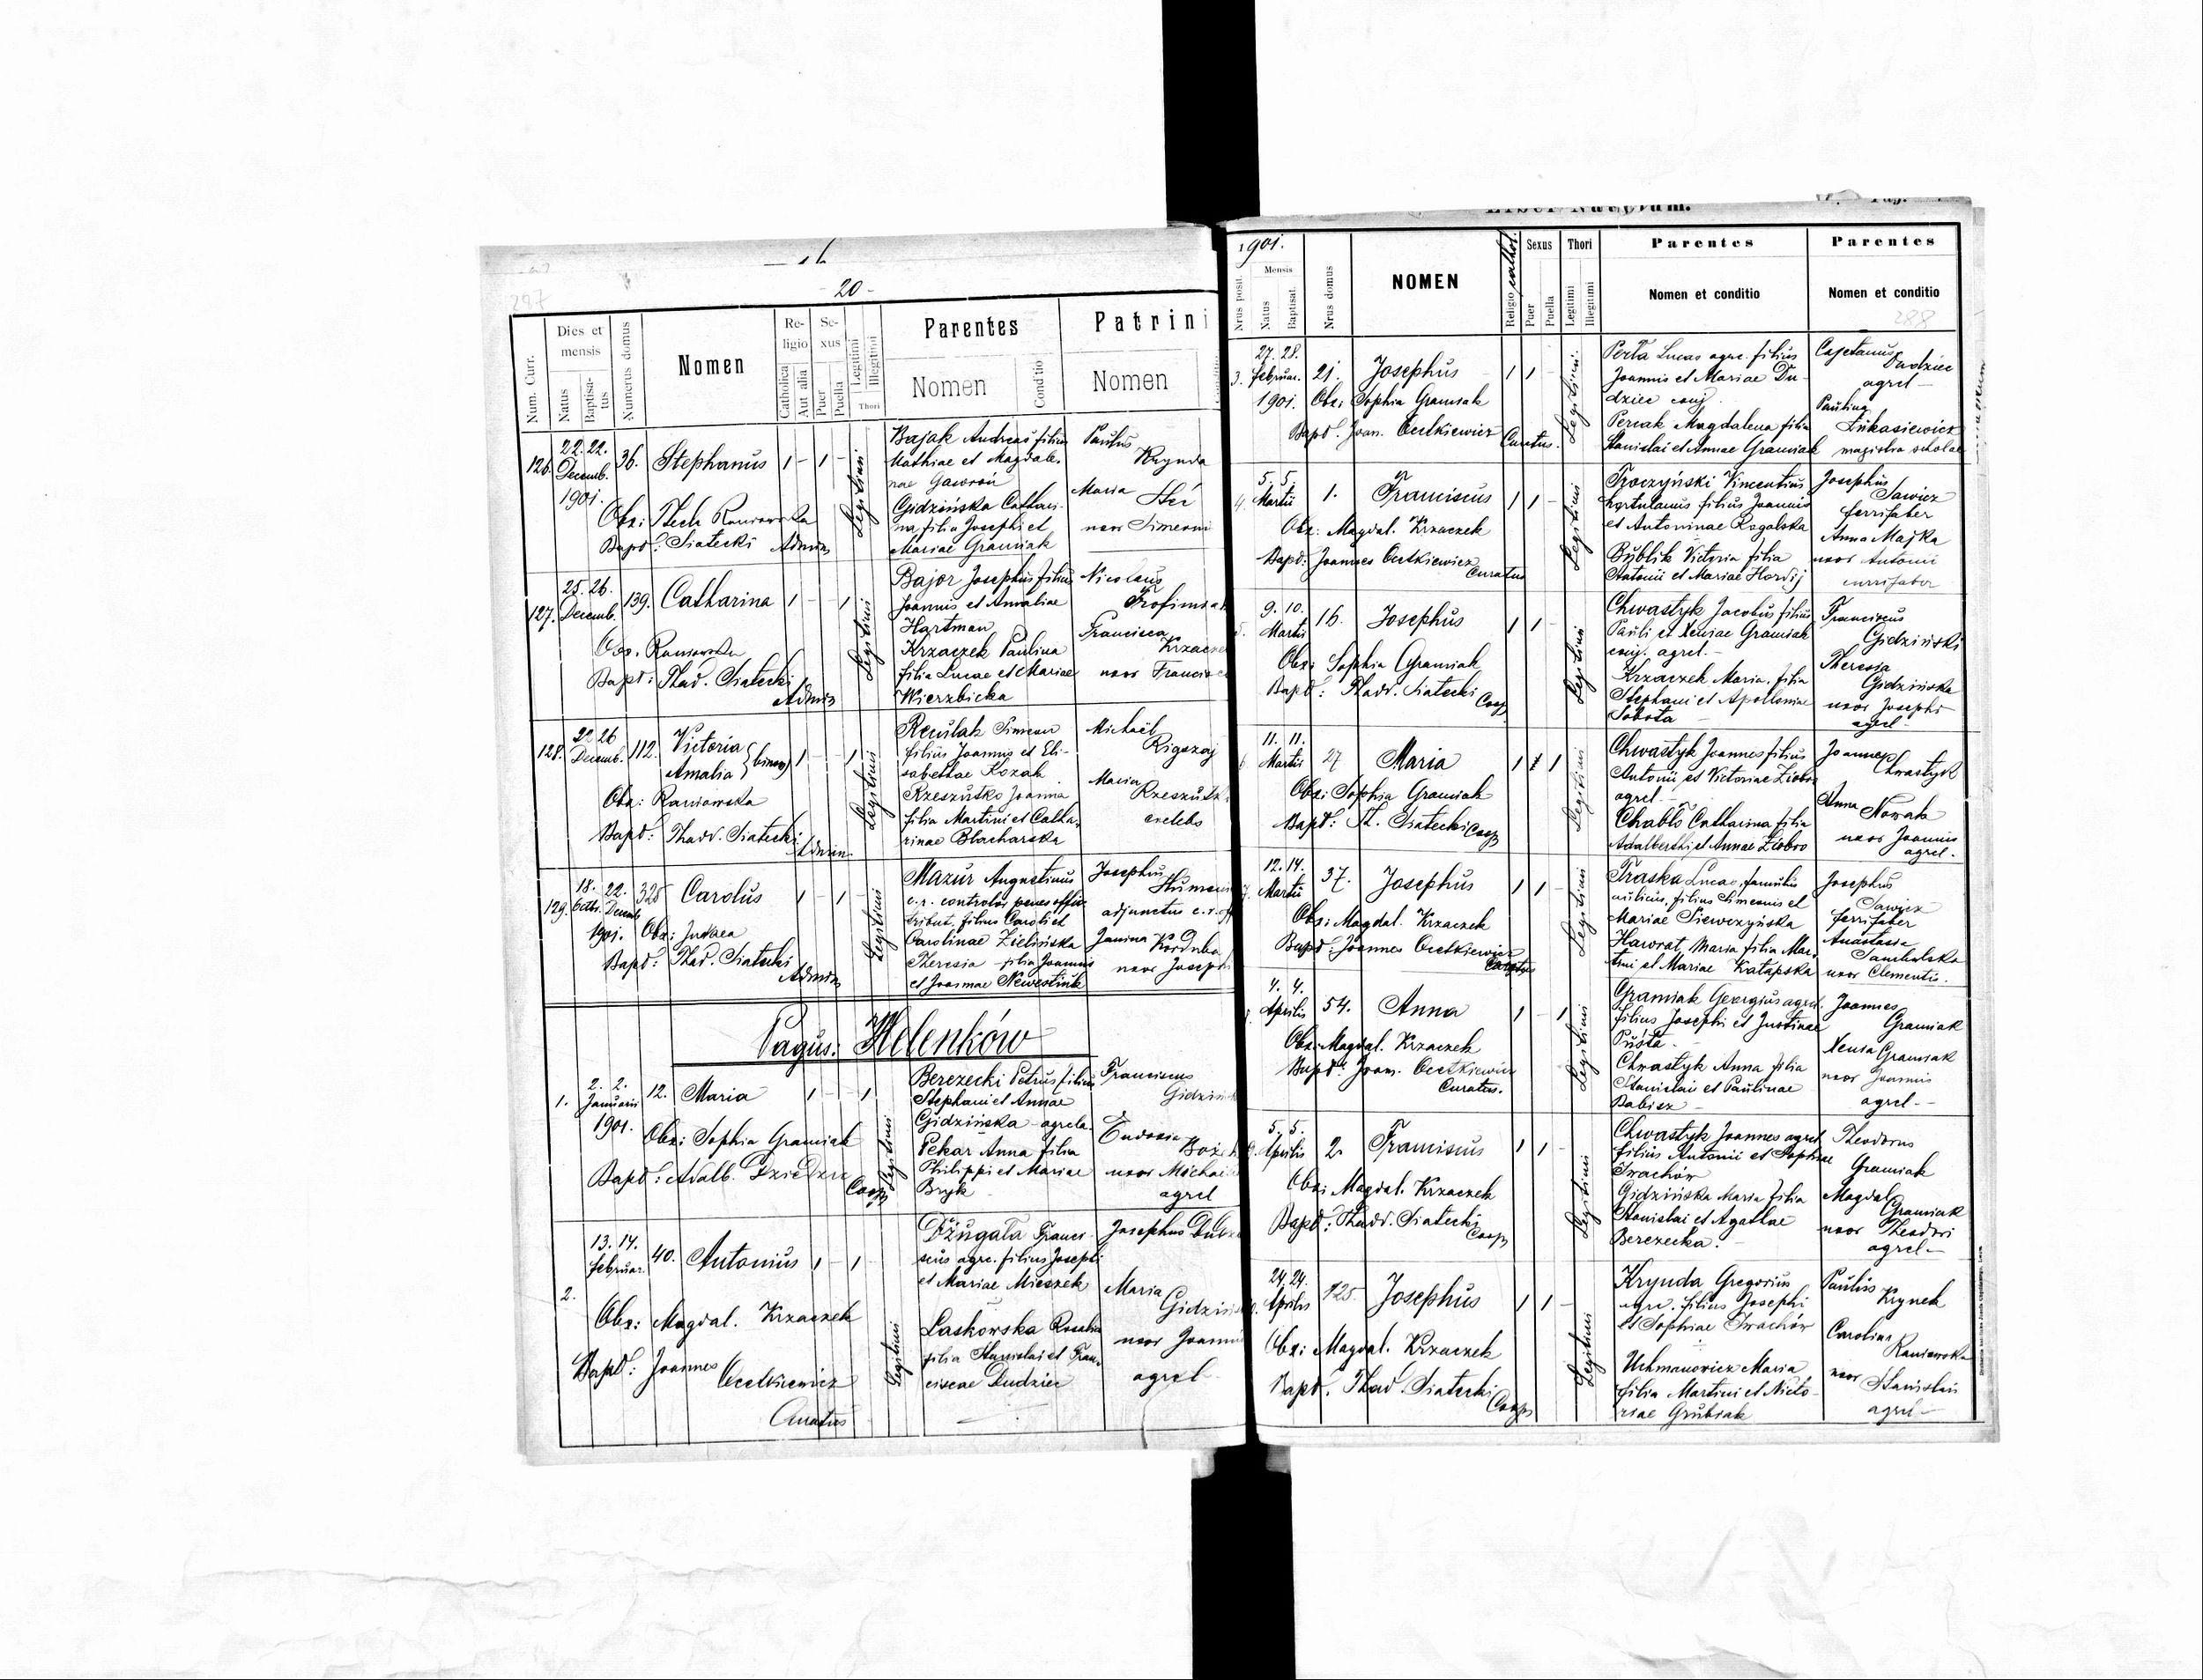 20
287
Num. Curr.
Dies et mensis
Natus
Baptisatus
Numerus domus
Nomen
Religio
Catholica
Aut alia
Sexus
Puer
Puella
Legitimi
Illegitimi
Thori
Parentes
Nomen
Conditio
Patrini
Nomen
126. 22. 22. Decemb. 1901. 36. Stephanus 1 - 1 - Legitimi
Bajak Andreas filius
Mathiae et Magdale-
nae Gawroń
Gidzińska Cathari-
na filia Josephi et
Mariae Gramiak
Paulus
Krynda
Maria
uxor Simeoni
Obs: Thecl. Raniowska
Bapt: Siatecki Admin
127. 25. 26. Decemb. 139. Catharina 1 - - 1 Legitimi
Bajor Josephus filius
Joannis et Amaliae
Hartman
Krzaczek Paulina
filia Lucae et Mariae
Wierzbicka
Nicolaus
Trofimiak
Francisca
Krzacze
uxor Francisc
Obs. Raniowska
Bapt: Thad. Siatecki
Admin
128. 22 26 Decemb. 112. Victoria Amalia (bin.) 1 - - 1 Legitimi
filius Joannis et Eli-
sabethae Kozak
Rzeszutko Joanna
filia Martini et Catha-
rinae Blacharska
Michaël
Rigszaj
Maria
Rzeszutk
caelebs
Obs: Raniowska
Bapt: Thadd. Siatecki
Admin
129. 18. Octbr. 22. Decemb. 1901. 325 Carolus 1 - 1 - Legitimi
Mazur Augustinus
c.r. controlor penes offic.
tribut. filius Caroli et
Carolinae Zielińska
Theresia filia Joannis
Josephus
adjunctus c.r. off
Janina Korduba
uxor Josephi
Obs: Judaea
Bapt: Thad. Siatecki
Admin
Pagus: Helenków
1. 2. 2. Januarii 1901. 12. Maria 1 - - 1 Legitimi
Berezecki Petrus filius
Stephani et Annae
Gidzińska - agricola
Pekar Anna filia
Philippi et Mariae
Bryk
Franciscus
Gidziń
Eudoxia
uxor Michael
agrcl
Obs: Sophia Gramiak
Bapt: Adalb. Dziedzic
Coop
2. 13. 14. februar. 40. Antonius 1 - 1 Legitimi
Dżugała Franci-
scus agrc. filius Josephi
et Mariae Mieszek
Laskowska Rosalia
filia Stanislai et Fran-
ciscae Dudziec
Josephus
Maria
Gidziń
uxor Joannis
agrcl
Obs: Magdal. Krzaczek
Bapt: Joannes
Ocetkiewicz
Curatus
Liber Natorum.
Pag.
1901.
288
Nrus posit.
Mensis
Natus
Baptisat.
Nrus domus
NOMEN
Religio
Sexus
Puer
Puella
Thori
Legitimi
Illegitimi
Parentes
Nomen et conditio
Parentes
Nomen et conditio
3. 27. 28. februar. 1901. 21. Josephus 1 1 - Legitimi
Perła Lucas agrc. filius
Joannis et Mariae Du-
dziec conj.
Perciak Magdalena filia
Stanislai et Annae Gramiak
Cajetanus
Dudziec
agrcl -
Paulina
Łukasiewicz
magistra scholae
Obs: Sophia Gramiak
Bapt. Joan. Ocetkiewicz Curatus.
4. 5. 5. Martii 1. Franciscus 1 1 - Legitimi
Troczyński Vincentius
hortulanus filius Joannis
et Antoninae Rogalska
Bublik Victoria filia
Antonii et Mariae Hordij
Josephus
Sawicz
ferrifaber
Anna Majka
uxor Antonii
currifaber
Obs: Magdal. Krzaczek
Bapt: Joannes Ocetkiewicz
Curatus
5. 9. 10. Martii 16. Josephus 1 1 - Legitimi
Chwastyk Jacobus filius
Pauli et Xeniae Gramiak
conj. agrcl. -
Krzaczek Maria filia
Stephani et Apolloniae
Sobota
Franciscus
Gidziński
Theresia
Gidzińska
uxor Josephi
agrcl -
Obs: Sophia Gramiak
Bapt: Thadd. Siatecki
Coop
11. 11. Martii 27 Maria 1 1 1 Legitimi
Chwastyk Joannes filius
Antonii et Victoriae Ziobro
agrcl -
Chabło Catharina filia
Adalberthi et Annae Ziobro
Joannes
Chwastyk
Anna
Nowak
uxor Joannis
agrcl -
Obs: Sophia Gramiak
Bapt: Th. Siatecki Coop
7. 12. 14. Martii 37. Josephus 1 1 - Legitimi
Traska Lucas, famulus
aulicus, filius Simeonis et
Mariae Siewczyńska
Haworat Maria filia Mar-
tini et Mariae Katapska
Josephus
Sawicz
ferrifaber
Anastasia
uxor Clementis.
Obs: Magdal. Krzaczek
Bapt: Joannes Ocetkiewicz
Curatus
4. 4. Aprilis 54. Anna 1 - 1 Legitimi
Gramiak Georgius agrcl.
filius Josephi et Justinae
Pusta -
Chwastyk Anna filia
Stanislai et Paulinae
Babicz -
Joannes
Gramiak
Xenia Gramiak
uxor Joannis
agrcl -
Obs: Magdal. Krzaczek
Bapt: Joan. Ocetkiewicz
Curatus.
5. 5. Aprilis 2. Franciscus 1 1 - Legitimi
Chwastyk Joannes agrcl
filius Antonii et Sophiae
Trachów
Gidzińska Maria filia
Stanislai et Agathae
Berezecka.
Theodorus
Gramiak
Magdal.
Gramiak
uxor Theodori
agrcl -
Obs: Magdal. Krzaczek
Bapt: Thadd. Siatecki
Coop
24. 24. Aprilis 125. Josephus 1 1 - Legitimi
Krynda Gregorius
agrc. filius Josephi
et Sophiae Trachów
Uchmanowicz Maria
filia Martini et Victo-
riae Grubiak
Paulus
Krynek
Carolina
Raniowska
uxor Stanislai
agrcl -
Obs: Magdal. Krzaczek
Bapt. Thad. Siatecki
Coop